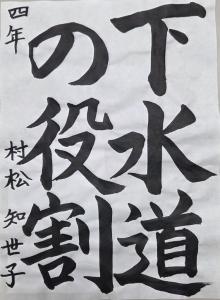 下水道
の役割
四年 村松 知世子